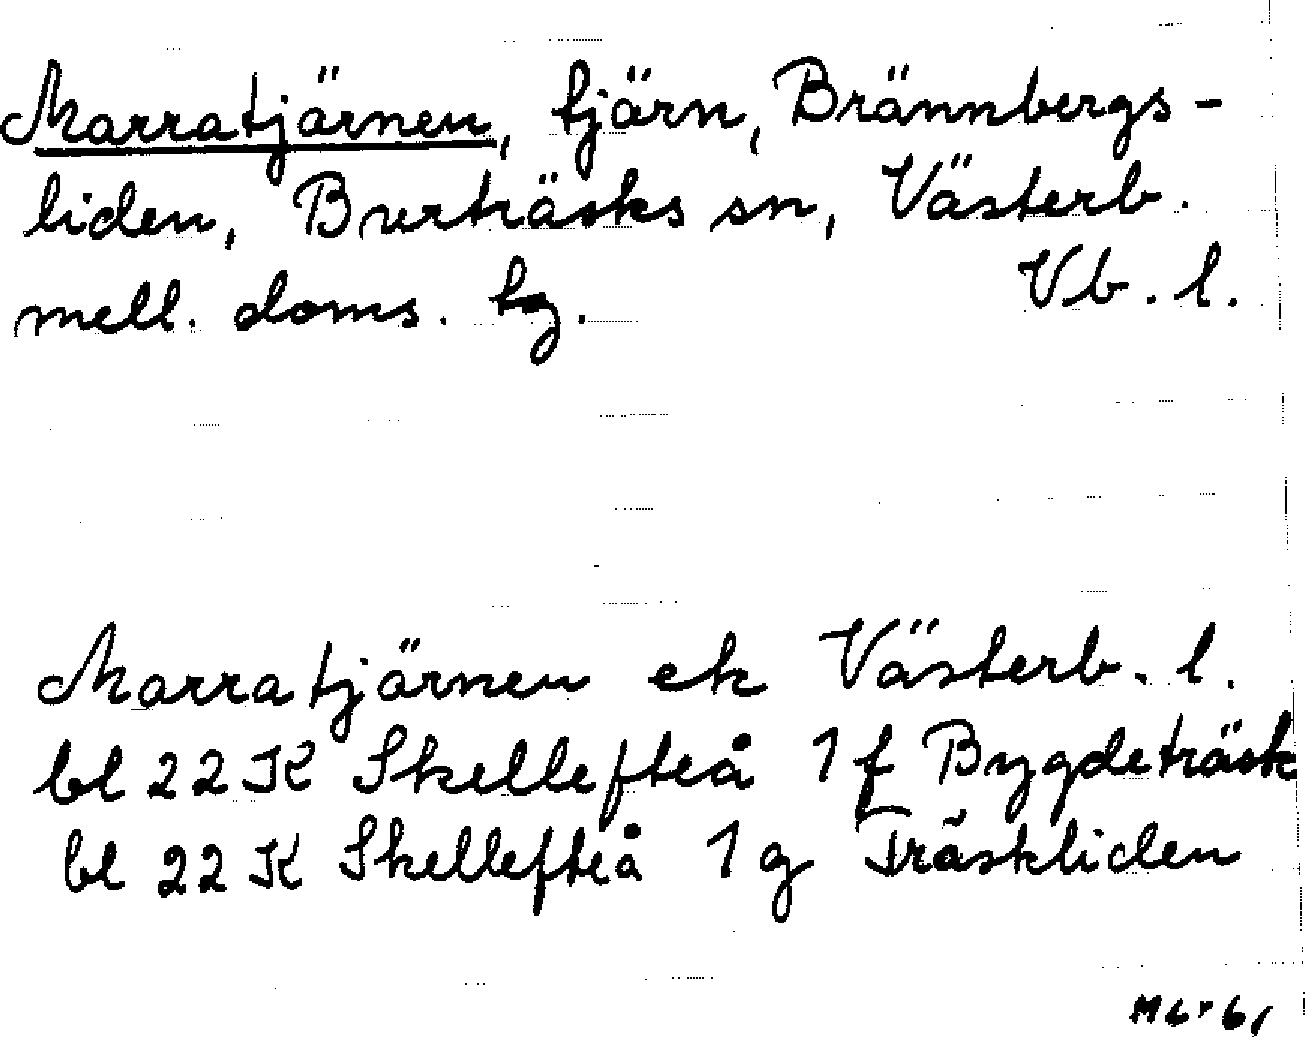 Marratjärnen, tjärn, Brännbergs-
liden, Burträsks sn, Västerb.
mell. doms. tg. Vb. l.
Marratjärnen ek Västerb. l.
bl 22 K Skellefteå 1 f Bygdeträsk
bl 22 K Skellefteå 1 g Träskliden